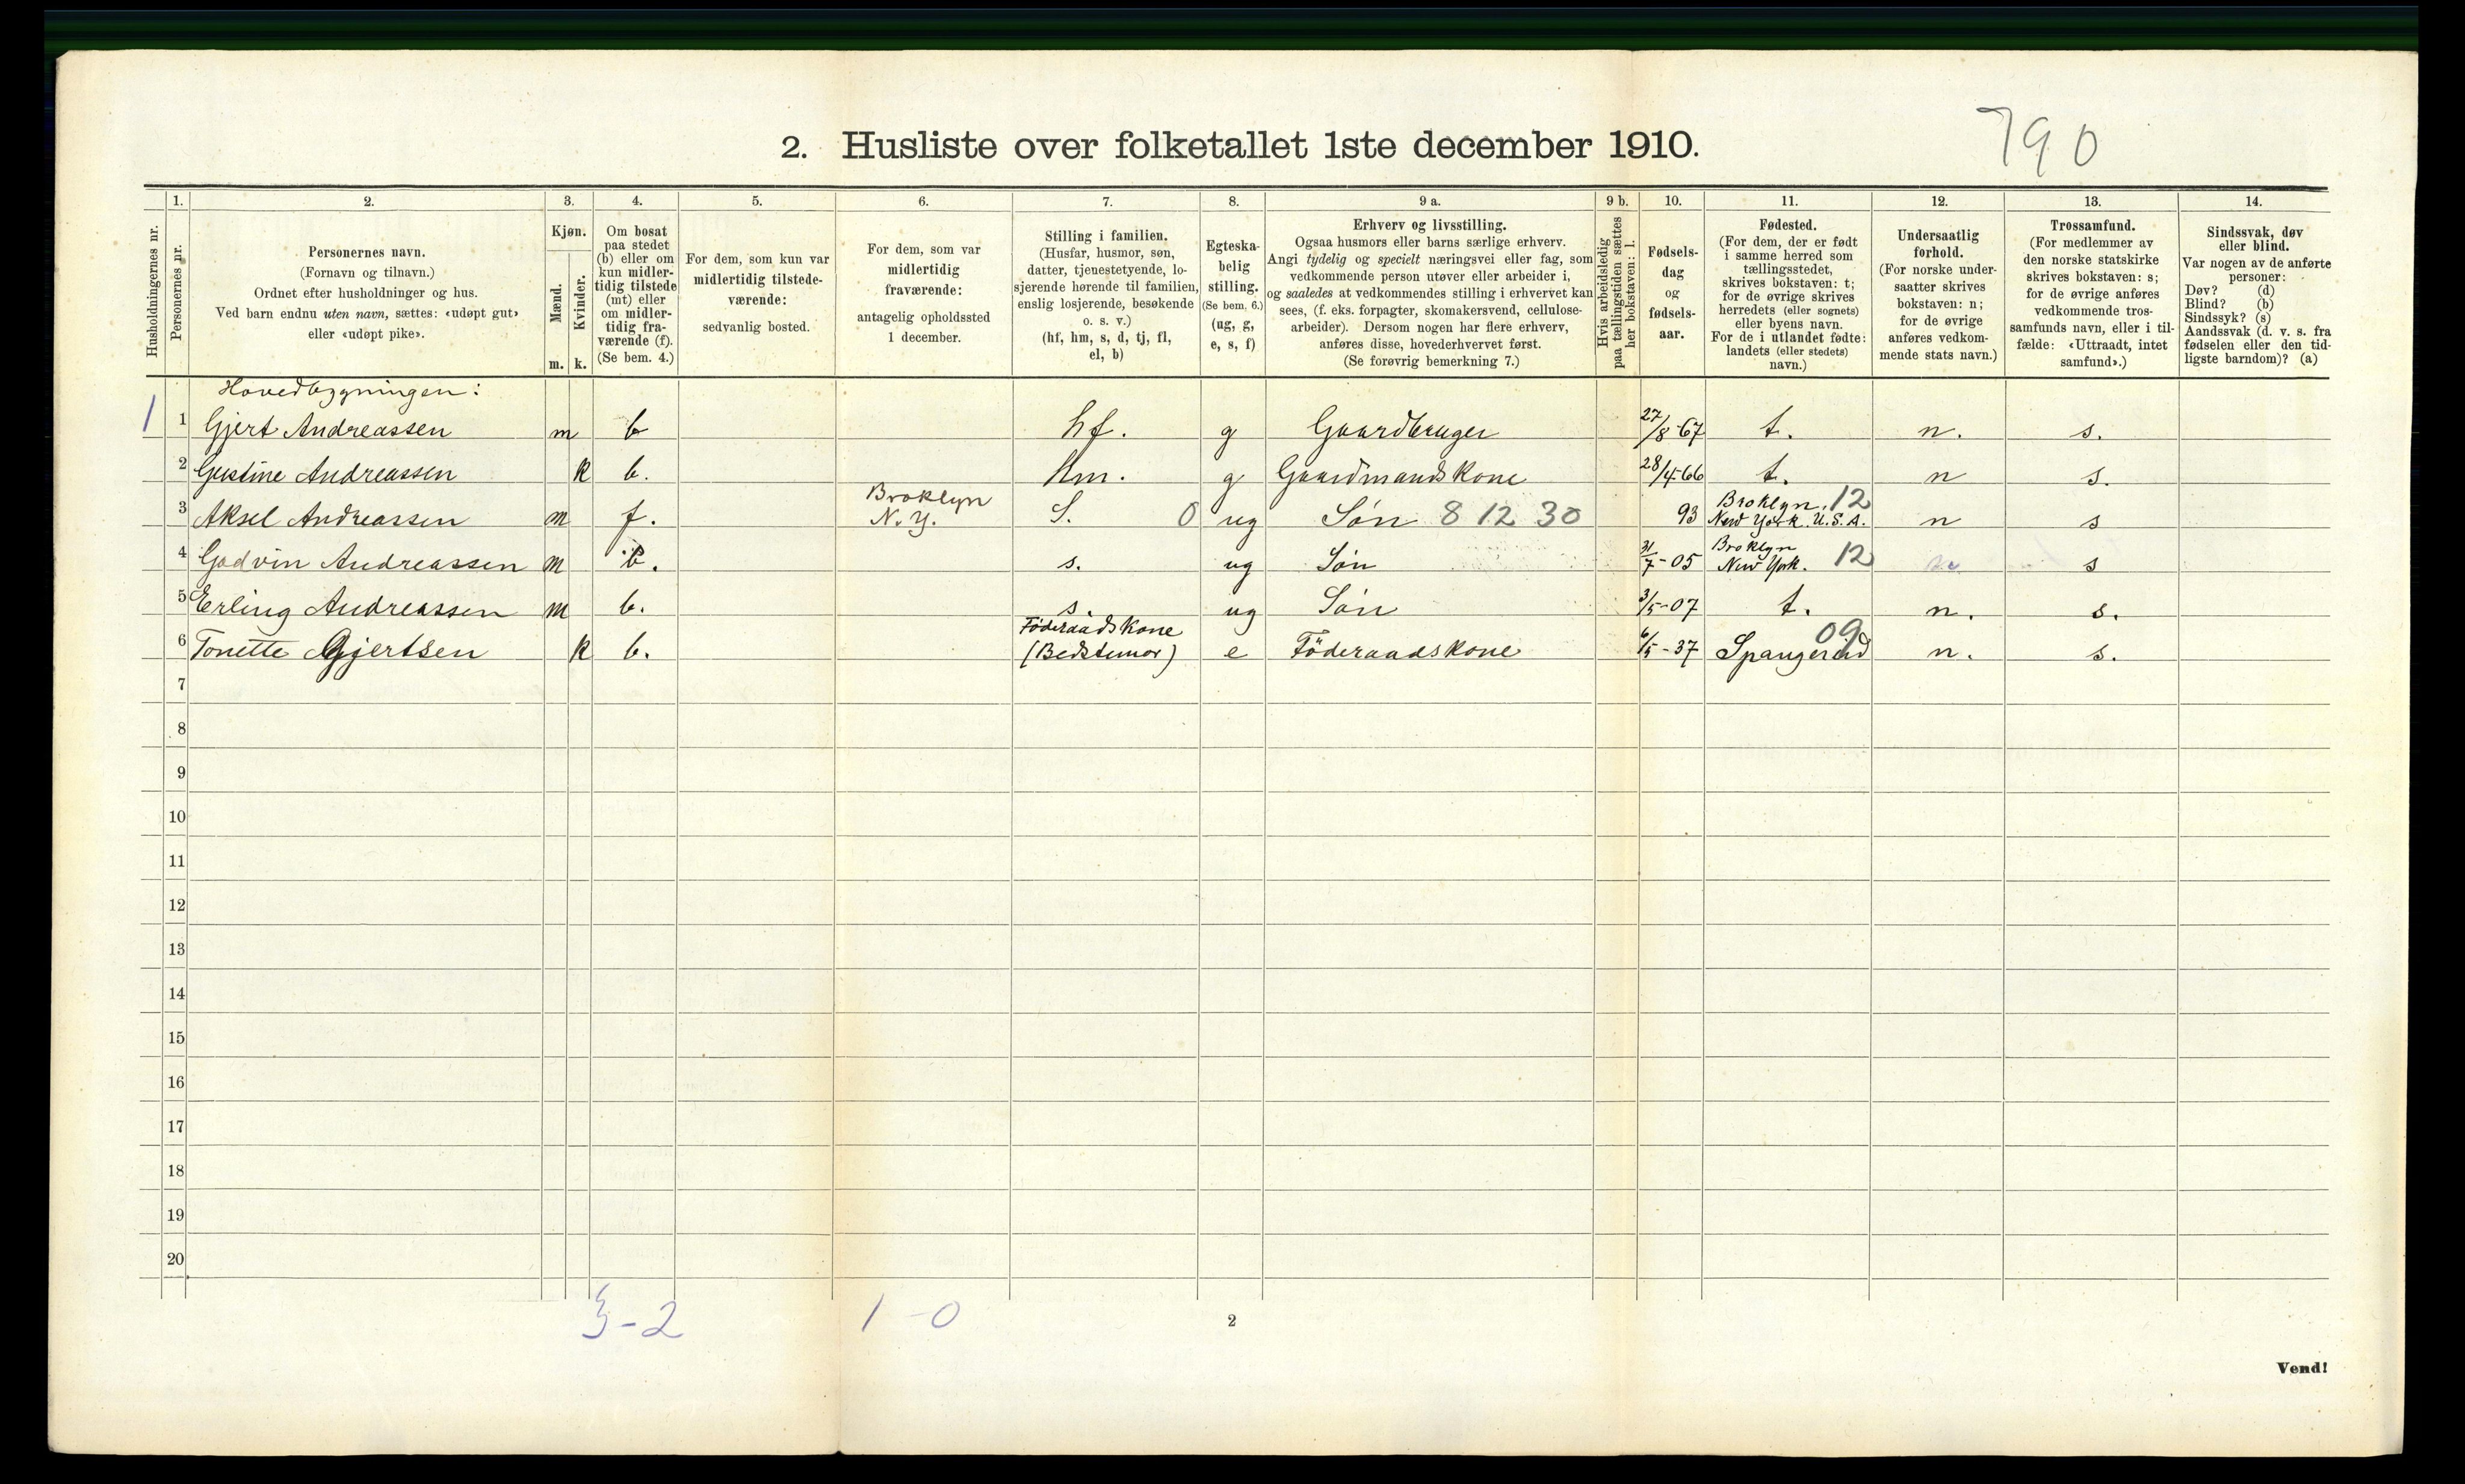 790
2. Husliste over folketallet 1ste december 1910.
1. 2. 3. 4. 5. 6. 7. 8. 9 a. 9 b. 10. 11. 12. 13. 14.
Husholdningernes nr.
Personernes nr.
Personernes navn.
(Fornavn og tilnavn.)
Ordnet efter husholdninger og hus.
Ved barn endnu uten navn, sættes: «udøpt gut»
eller «udøpt pike».
Kjøn.
Mænd.
Kvinder.
m. k.
Om bosat
paa stedet
(b) eller om
kun midler-
tidig tilstede
(mt) eller
om midler-
tidig fra-
værende (f).
(Se bem. 4.)
For dem, som kun var
midlertidig tilstede-
værende:
sedvanlig bosted.
For dem, som var
midlertidig
fraværende:
antagelig opholdssted
1 december.
Stilling i familien.
(Husfar, husmor, søn,
datter, tjenestetyende, lo-
sjerende hørende til familien,
enslig losjerende, besøkende
o. s. v.)
(hf, hm, s, d, tj, fl,
el, b)
Egteska-
belig
stilling.
(Se bem. 6.)
(ug, g,
e, s, f)
Erhverv og livsstilling.
Ogsaa husmors eller barns særlige erhverv.
Angi tydelig og specielt næringsvei eller fag, som
vedkommende person utøver eller arbeider i,
og saaledes at vedkommendes stilling i erhvervet kan
sees, (f. eks. forpagter, skomakersvend, cellulose-
arbeider). Dersom nogen har flere erhverv,
anføres disse, hovederhvervet først.
(Se forøvrig bemerkning 7.)
Hvis arbeidsledig
paa tællingstiden sættes
her bokstaven: l.
Fødsels-
dag
og
fødsels-
aar.
Fødested.
(For dem, der er født
i samme herred som
tællingsstedet,
skrives bokstaven: t;
for de øvrige skrives
herredets (eller sognets)
eller byens navn.
For de i utlandet fødte:
landets (eller stedets)
navn.)
Undersaatlig
forhold.
(For norske under-
saatter skrives
bokstaven: n;
for de øvrige
anføres vedkom-
mende stats navn.)
Trossamfund.
(For medlemmer av
den norske statskirke
skrives bokstaven: s;
for de øvrige anføres
vedkommende tros-
samfunds navn, eller i til-
fælde: «Uttraadt, intet
samfund».)
Sindssvak, døv
eller blind.
Var nogen av de anførte
personer:
Døv? (d)
Blind? (b)
Sindssyk? (s)
Aandssvak (d. v. s. fra
fødselen eller den tid-
ligste barndom)? (a)
Hovedbygningen:
1 1 Gjert Andreassen m b hf. g Gaardbruger 27/8-67 t. n. s.
2 Gustine Andreassen k b. Hm. g Gaardmandskone 28/4-66 t. n s.
3 Aksel Andreassen m f. Broklyn N.Y. S. 0 ug Søn 8 12 30 93 Broklyn, 12 New York. U.S.A. n s
4 Godvin Andreassen m b. s. ug Søn 31/7-05 Broklyn New York. 12 s
5 Erling Andreassen m b. s. ug Søn 3/5-07 t. n. s.
6 Tonette Gjertsen k b. Föderaadskone (Bedstemor) e Föderaadskone 6/5-37 09 Spangereid n. s.
7
8
9
10
11
12
13
14
15
16
17
18
19
20
3-2 1-0
2
Vend!